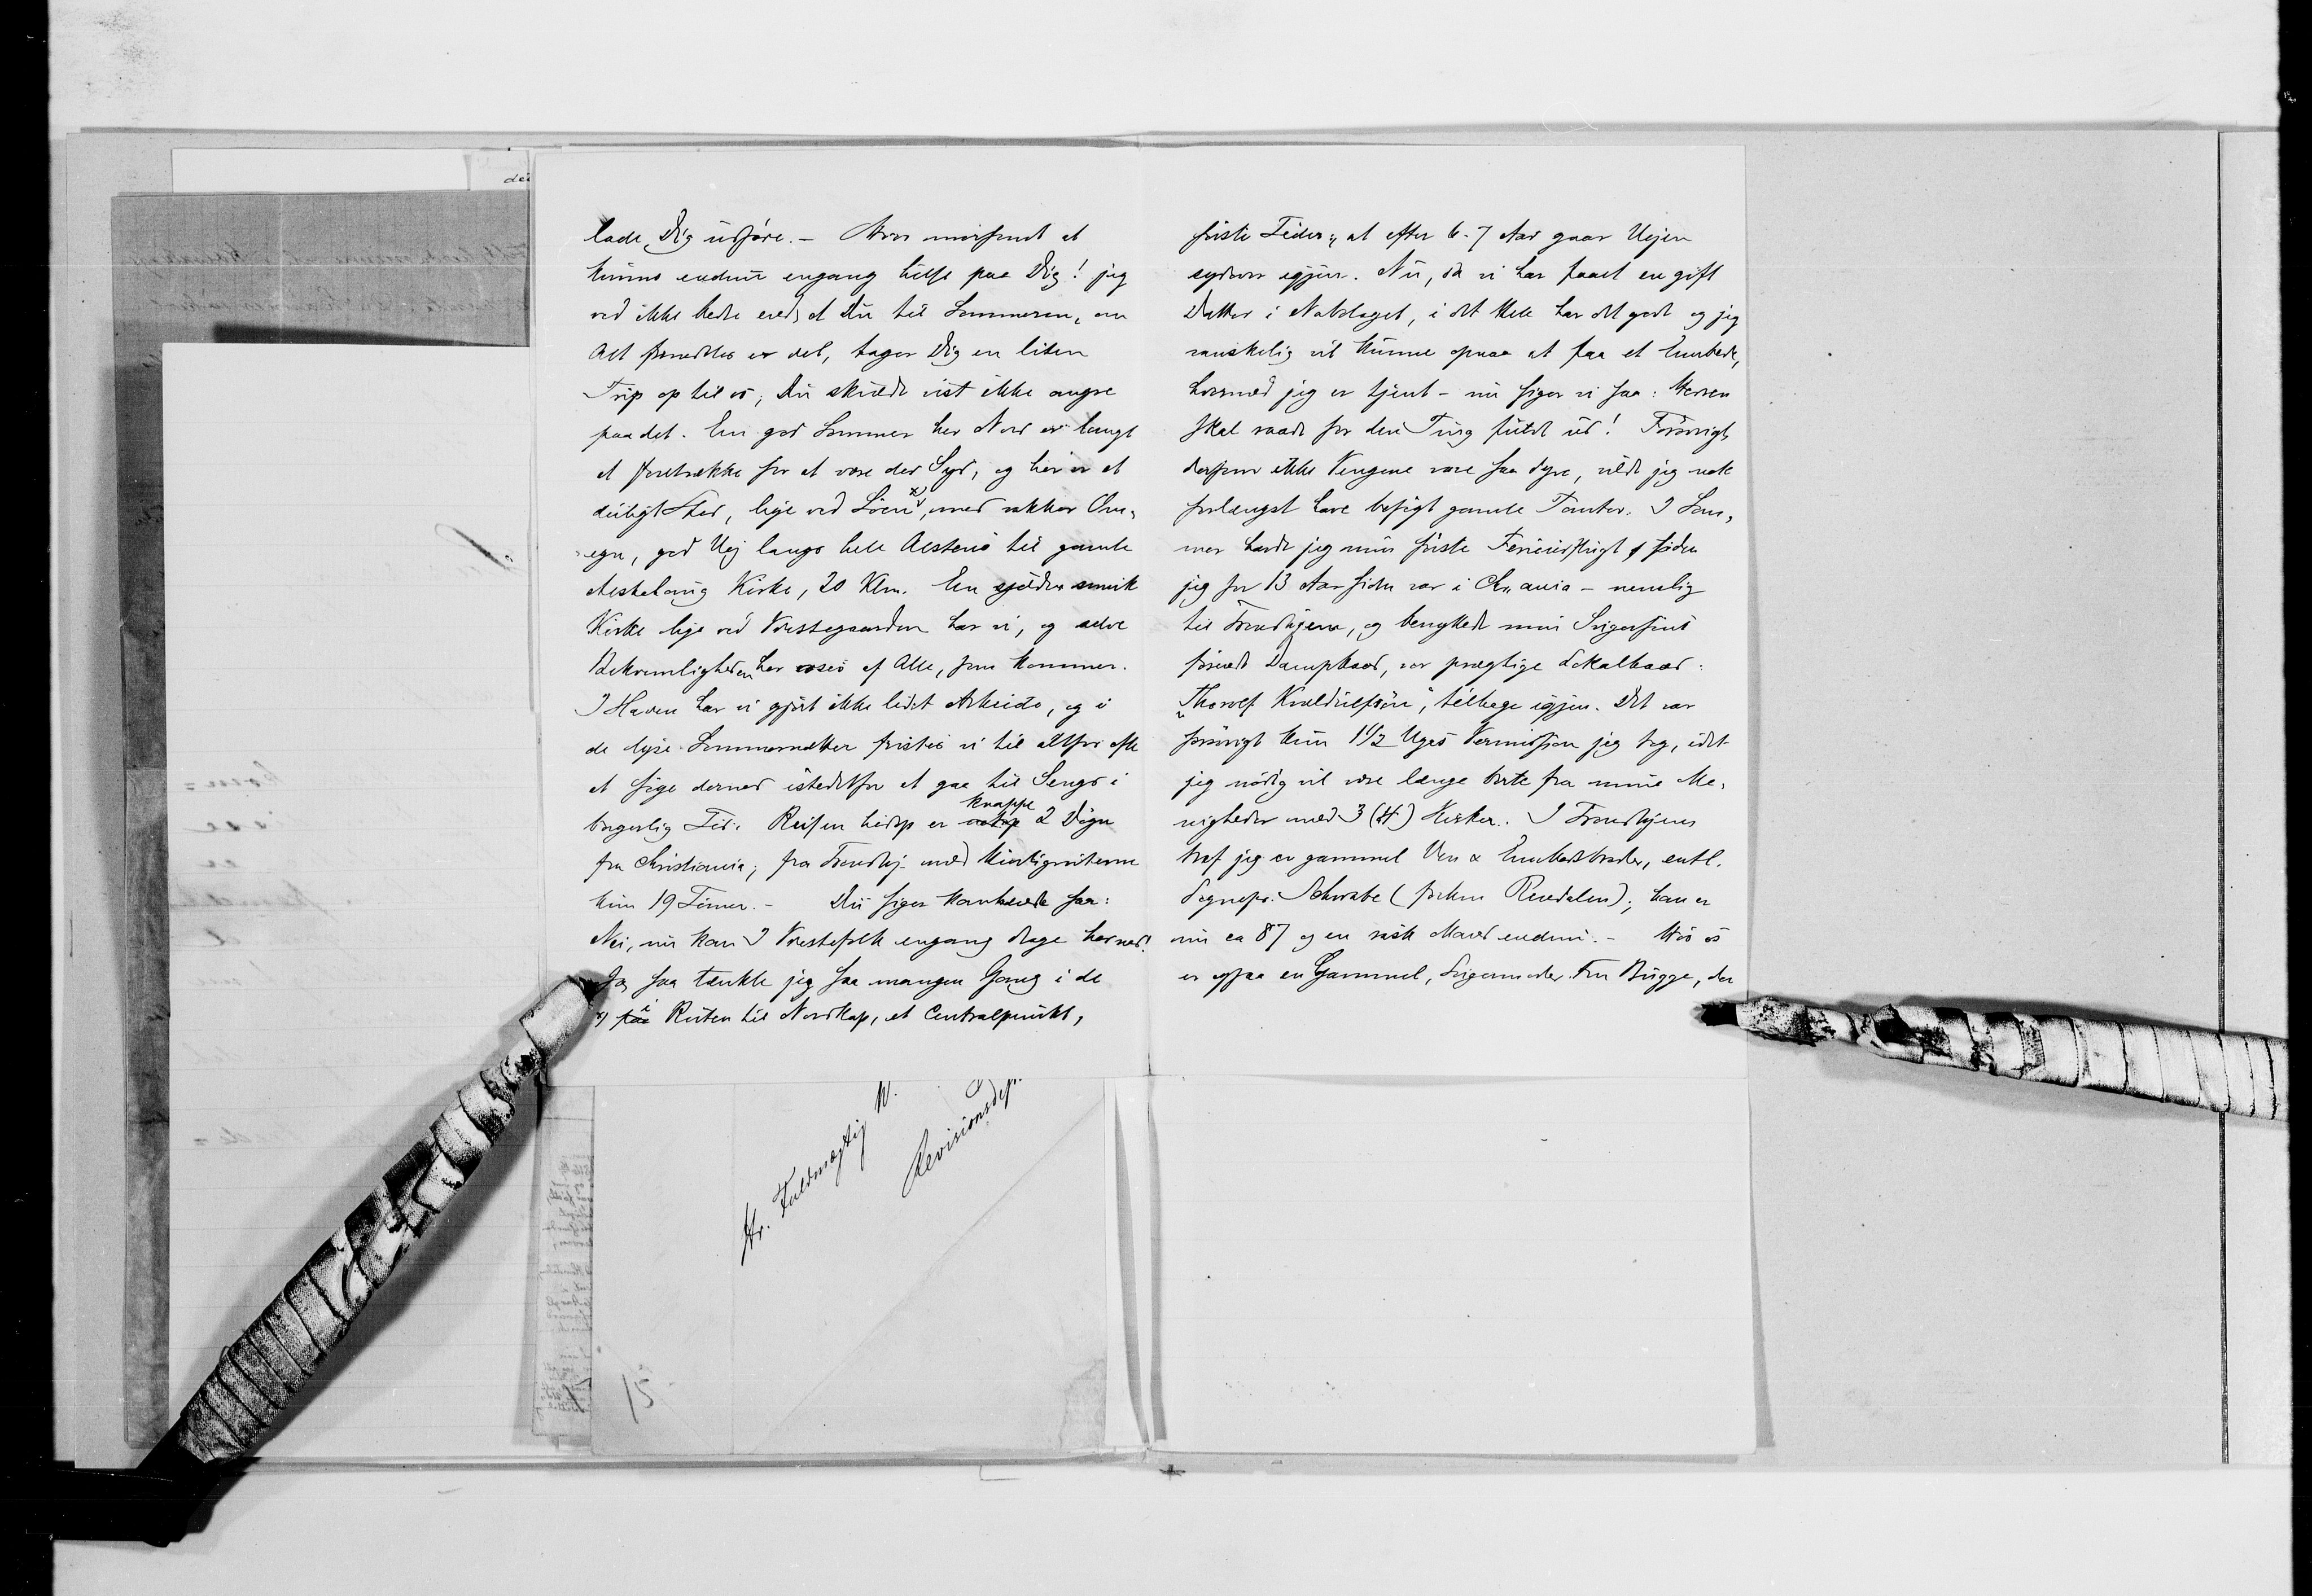 lade Dig udføre. – Hvor morsomt at
kunne endnu engang hilse paa Dig! jeg
ved ikke bedre end, at Du til Sommeren, om
Alt er det, tager Dig en liten
Trip op til os; Du skulde vist ikke angre
paa det. En god Sommer her Nord er langt
at foretrække for at være der Syd, og her er et
deiligt Sted, lige ved Søen x), med vakker Om-
egn, god Vej langs hele Alsteno til gamle
Alstahoug Kirke, 20 Klm. En sjelden smuk
Kirke lige ved Præstegaarden har vi, og selve
Bekvemligheden her roses af Alle, som kommer.
I Haven har vi gjort ikke lidet Arbeide, og i
de lyse Sommernætter fristes vi til altfor ofte
at sige derned istedetfor at gaa til Sengs i
borgerlig Tid. Reisen hidop er knappe 2 Døgn
fra Christiania; fra Trondhj. med Hurtigruterne
kun 19 Timer. – Du siger kanskede saa:
Nei, nu kan I Præstefolk engang drage herned!
Ja, saa tænkte jeg saa mangen Gang i de
x) i Ruten til Nordkap, et Centralpunkt,
første Tider, at efter 6-7 Aar gaar Vejen
sydover igjen. Nu, da vi har faaet en gift
Datter i Nabolaget, i det Hele har det godt og jeg
vanskelig vil kunne opnaa at faa et Embede,
hvormed jeg er tjent – nu siger vi saa: Herren
skal raade for den Ting fuldt ud! Forøvrigt,
dersom ikke Pengene vare saa dyre, vilde jeg nok
forlængst have besøgt gamle Tomter. I Som-
mer havde jeg min første Ferieudflugt siden
jeg for 13 Aar siden var i Chr.ania – nemlig
til Trondhjem, og benyttede min Svigersøns
Dampbaad, vor prægtige Lokalbaad:
„Thorolf Kveldulfsøn", tilbage igjen. Det var
forøvrigt kun 1 1/2 Uges Permission jeg tog, idet
jeg nødig vil være længe borte fra mine Me-
nigheder med 3 (4) Kirker. I Trondhjem
traf jeg en gammel Ven & Embedsbroder, entl.
Sognepr. Schwabe (forhen Rendalen); han er
nu ca 87 og en rask Mand endnu. – Hos os
er ogsaa en Gammel, Svigermoder Fru Bügge, der
Hr. Fuldmægtig N.
Revisionsdep.
15